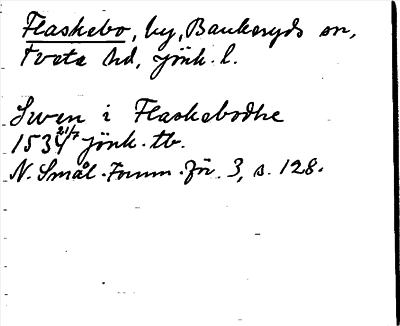 Flaskebo, by, Bankeryds sn,
Tveta hd, Jönk. l.
Swen i Flaskebodhe
1534 21/7 Jönk. tb.
N. Smål. Fornm. För. 3, s. 128.